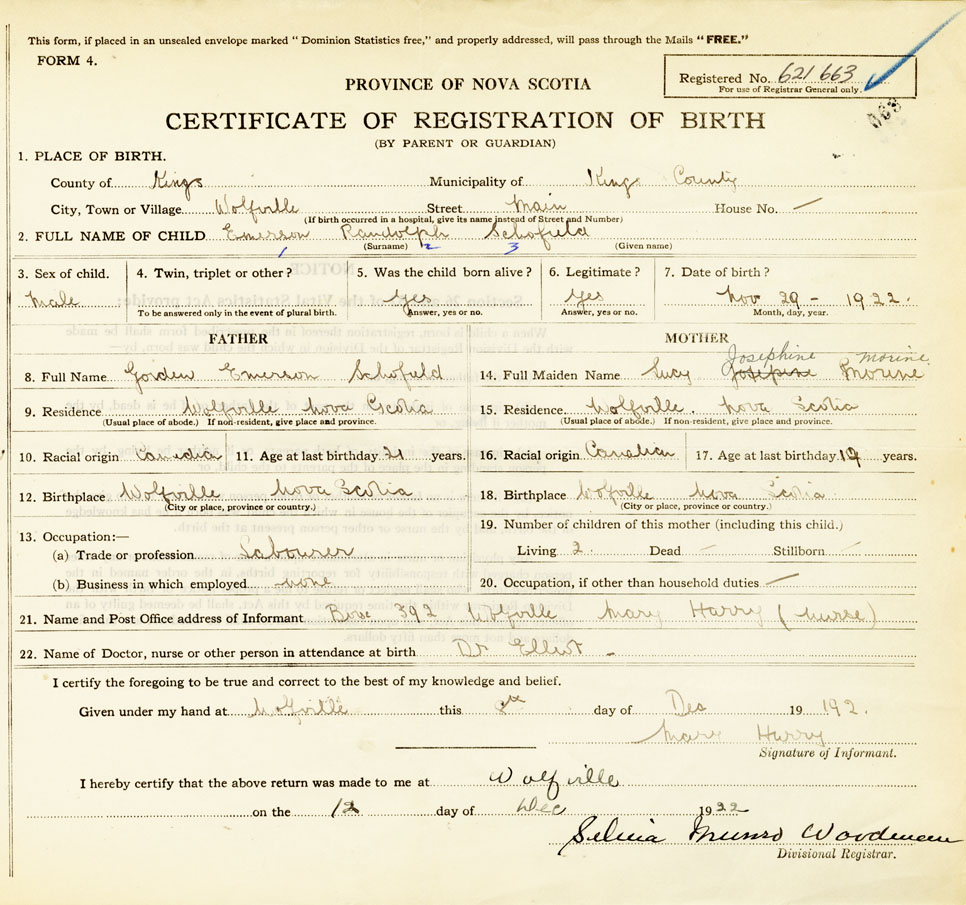 This form, if placed in an unsealed envelope marked " Dominion Statistics free," and properly addressed, will pass through the Mails "FREE."
FORM 4.
Registered No. 621 663
For use of Registrar General only.
PROVINCE OF NOVA SCOTIA
CERTIFICATE OF REGISTRATION OF BIRTH
(BY PARENT OR GUARDIAN)
1. PLACE OF BIRTH.
County of Kings Municipality of Kings County
City, Town or Village Wolfville Street Main House No. —
(If birth occurred in a hospital, give its name instead of Street and Number)
2. FULL NAME OF CHILD Emerson Randolph Schofield
1 (Surname) 2 3 (Given name)
3. Sex of child. 4. Twin, triplet or other? 5. Was the child born alive? 6. Legitimate? 7. Date of birth?
Male Yes Yes Nov 29 - 1922.
To be answered only in the event of plural birth. Answer, yes or no. Answer, yes or no. Month, day, year.
FATHER MOTHER
Josephine Morine
8. Full Name Gorden Emerson Schofield 14. Full Maiden Name Lucy Josepine Morine
9. Residence Wolfville Nova Scotia 15. Residence Wolfville. Nova Scotia
(Usual place of abode.) If non-resident, give place and province. (Usual place of abode.) If non-resident, give place and province.
10. Racial origin Canadian 11. Age at last birthday 21 years. 16. Racial origin Canadian 17. Age at last birthday 19 years.
12. Birthplace Wolfville Nova Scotia 18. Birthplace Wolfville Nova Scotia
(City or place, province or country.) (City or place, province or country.)
13. Occupation:— 19. Number of children of this mother (including this child.)
(a) Trade or profession Labourer Living 2. Dead — Stillborn —
(b) Business in which employed none 20. Occupation, if other than household duties —
21. Name and Post Office address of Informant Box 392 Wolfville Mary Harry (Nurse)
22. Name of Doctor, nurse or other person in attendance at birth Dr Elliot -
I certify the foregoing to be true and correct to the best of my knowledge and belief.
Given under my hand at Wolfville this 8th day of Dec 19 192.
Mary Harry
Signature of Informant.
I hereby certify that the above return was made to me at Wolfville
on the 12 day of Dec 1922
Selina Munro Woodman
Divisional Registrar.